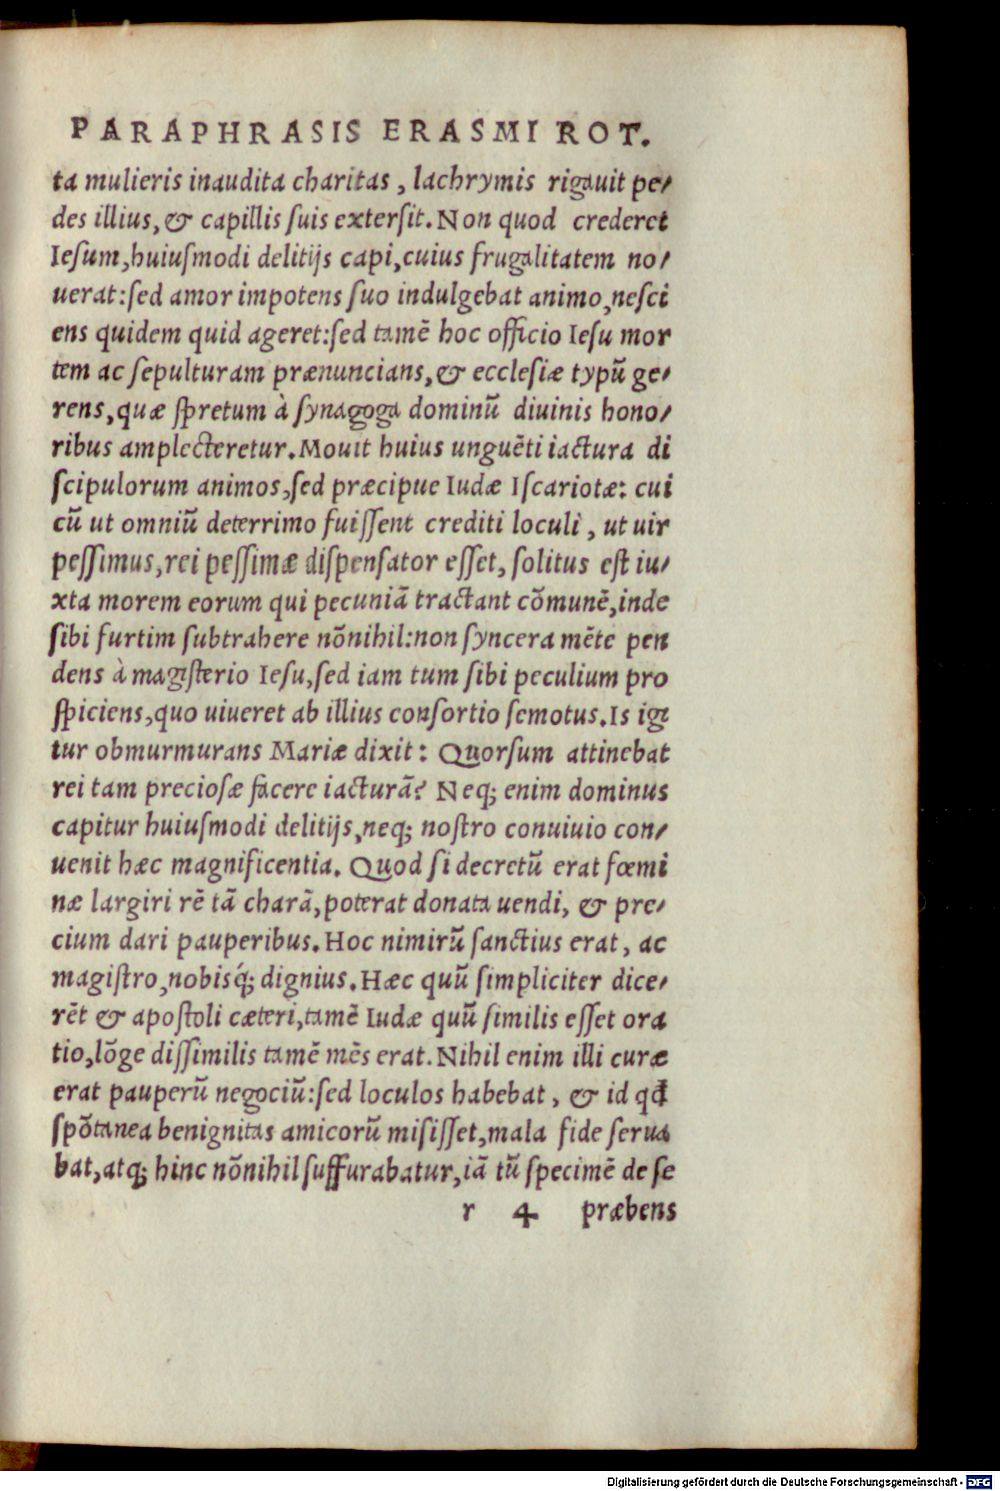 PARAPHRASIS ERASMI ROT.
ta mulieris inaudita charitas, lachrymis rigauit pe/
des illius, & capillis ſuis exterſit. Non quod crederet
Ieſum, huiuſmodi delitijs capi, cuius frugalitatem no/
uerat: ſed amor impotens ſuo indulgebat animo, neſci
ens quidem quid ageret: ſed tamē hoc officio Ieſu mor
tem ac ſepulturam prænuncians, & eccleſiæ typū ge/
rens, quæ ſpretum à ſynagoga dominū diuinis hono/
ribus amplecteretur. Mouit huius unguēti iactura di
ſcipulorum animos, ſed præcipue Iudæ Iſcariotæ: cui
cū ut omniū deterrimo fuiſſent crediti loculi, ut uir
peſſimus, rei peſſimæ diſpenſator eſſet, ſolitus eſt iu/
xta morem eorum qui pecuniā tractant cōmunē, inde
ſibi furtim ſubtrahere nōnihil: non ſyncera mēte pen
dens à magiſterio Ieſu, ſed iam tum ſibi peculium pro
ſpiciens, quo uiueret ab illius conſortio ſemotus. Is igi
tur obmurmurans Mariæ dixit: Quorſum attinebat
rei tam precioſæ facere iacturā? Neq; enim dominus
capitur huiuſmodi delitijs, neq; noſtro conuiuio con/
uenit hæc magnificentia. Quod ſi decretū erat fœmi
næ largiri rē tā charā, poterat donata uendi, & pre/
cium dari pauperibus. Hoc nimirū ſanctius erat, ac
magiſtro, nobisq́; dignius. Hæc quū ſimpliciter dice/
rēt & apoſtoli cæteri, tamē Iudæ quū ſimilis eſſet ora
tio, lōge diſſimilis tamē mēs erat. Nihil enim illi curæ
erat pauperū negociū: ſed loculos habebat, & id qđ
ſpōtanea benignitas amicorū miſiſſet, mala fide ſerua
bat, atq; hinc nōnihil ſuffurabatur, iā tū ſpecimē de ſe
r 4 præbens
Digitalisierung gefördert durch die Deutsche Forschungsgemeinschaft - DFG